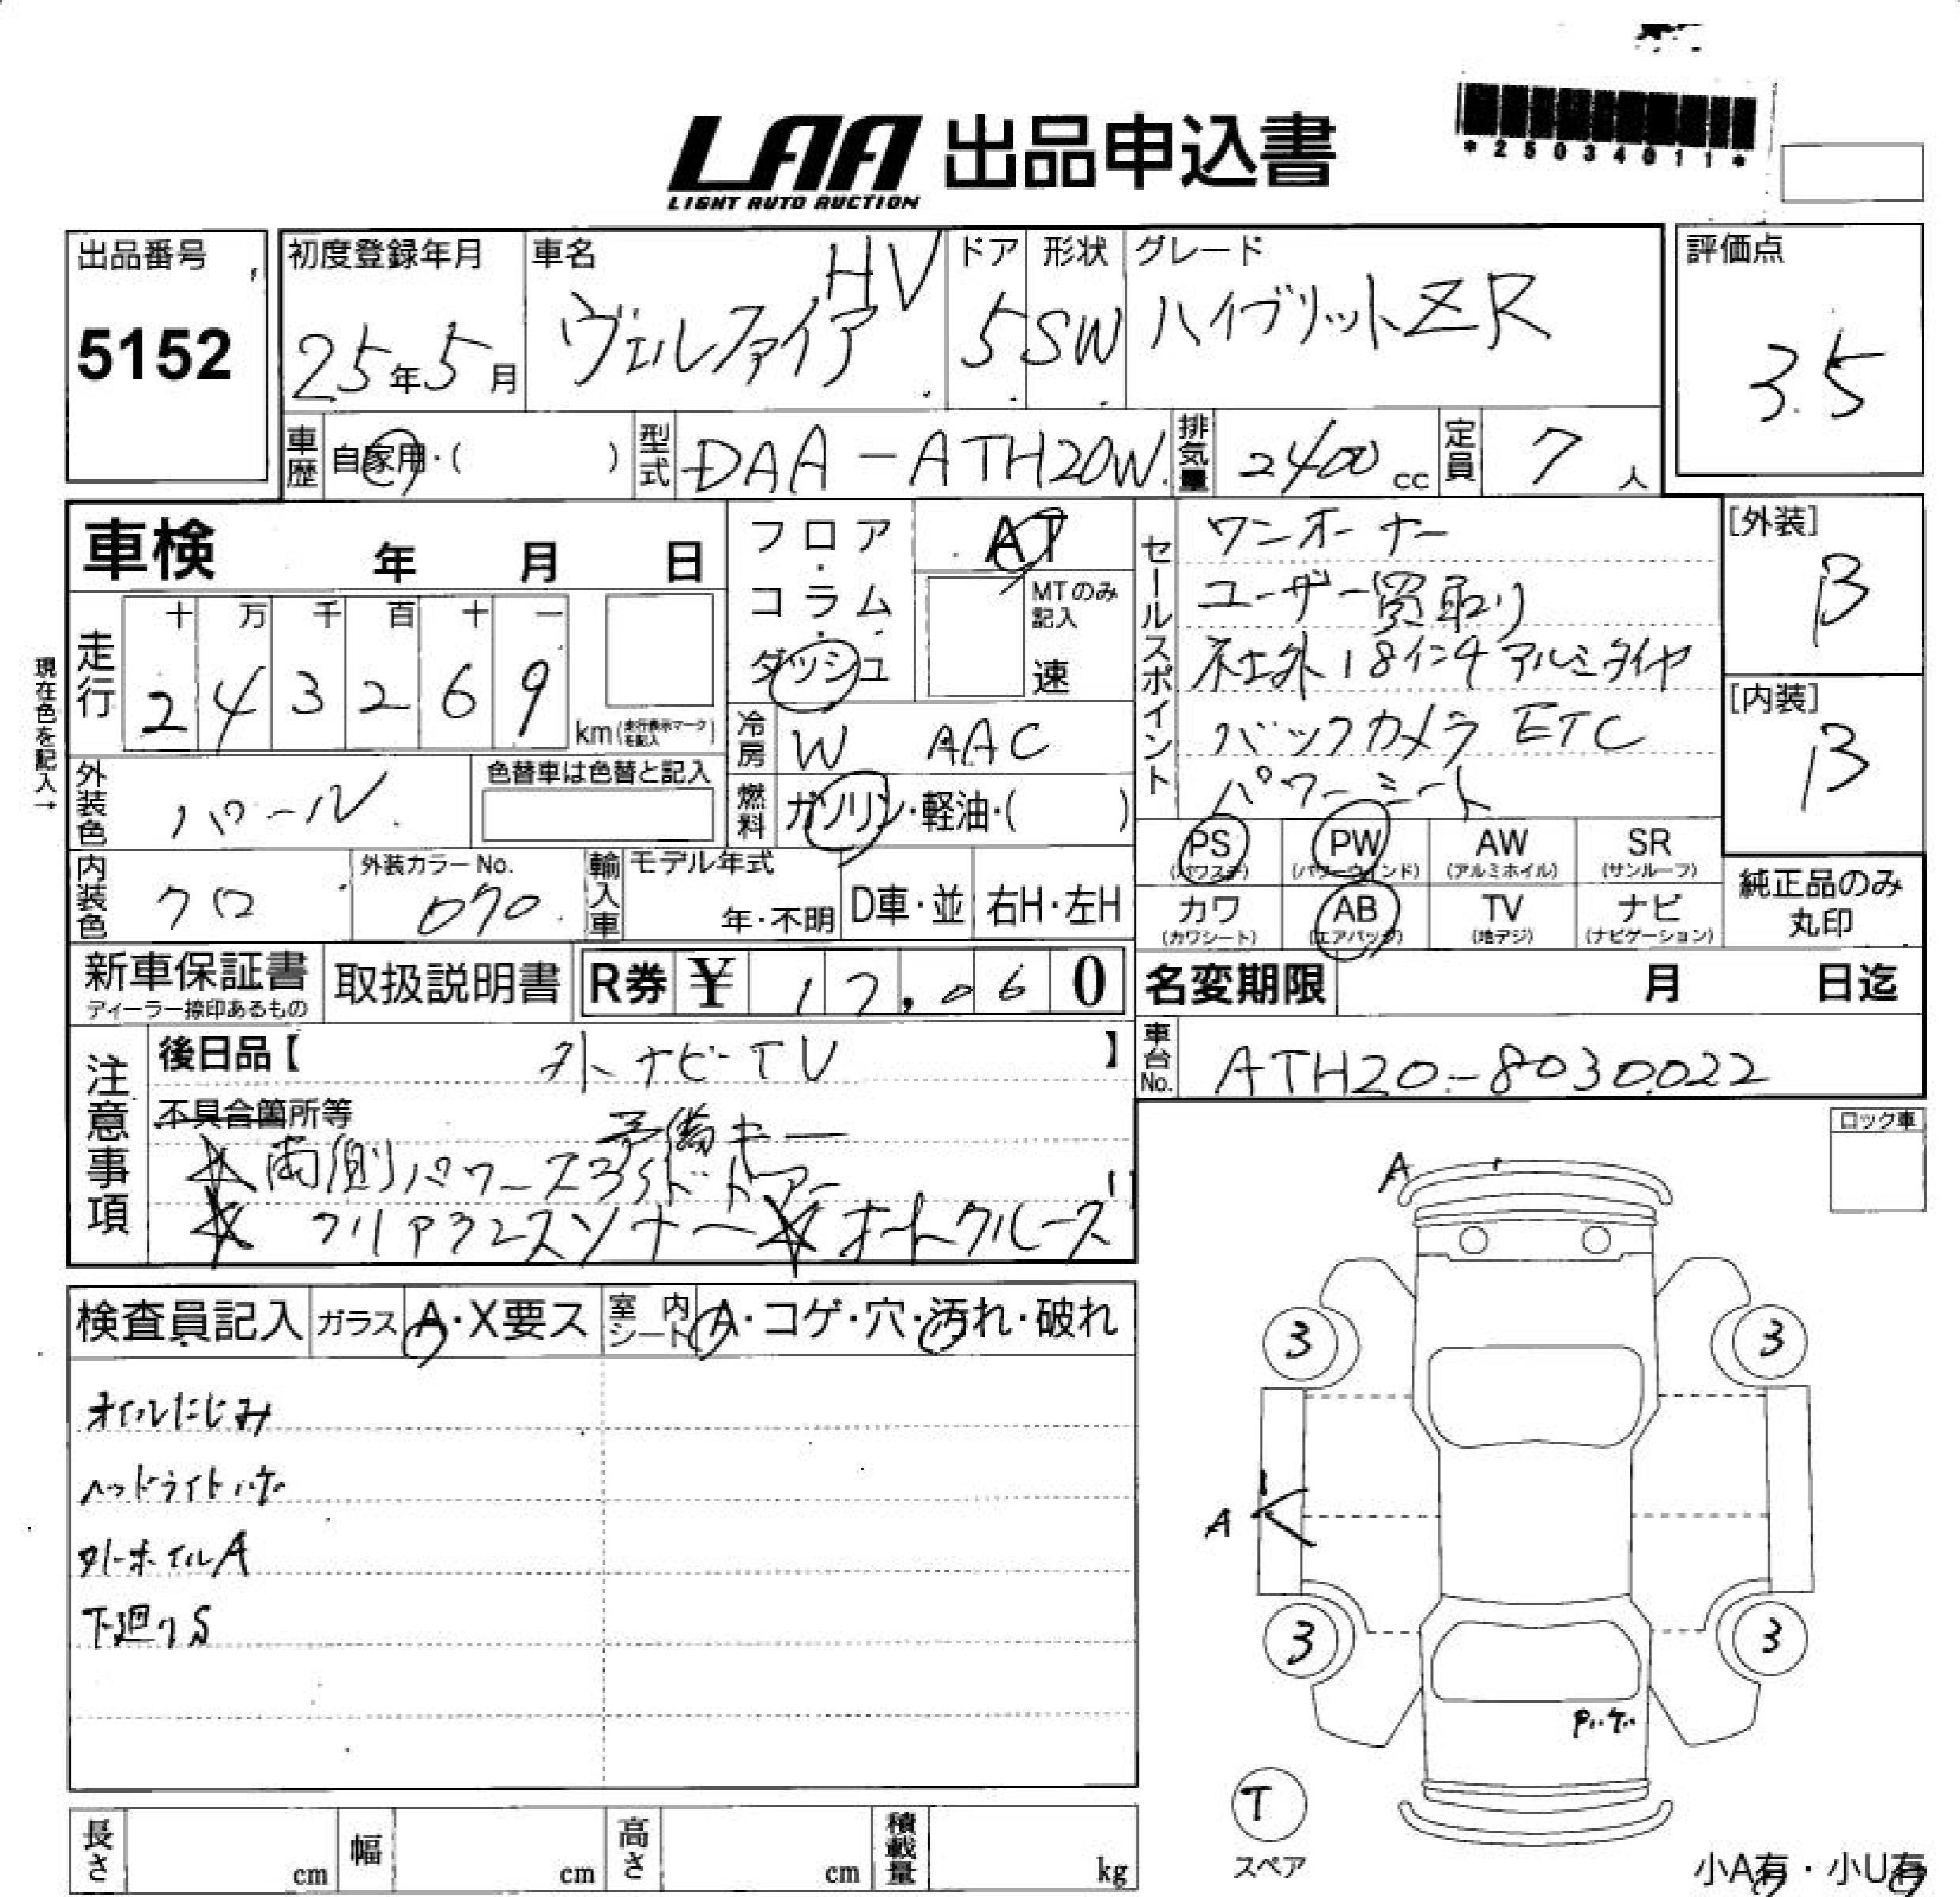 LAA 出品申込書
LIGHT AUTO AUCTION
*25034011*
出品番号
5152
初度登録年月
25年5月
車名
ヴェルファイア HV
ドア
5
形状
SW
グレード
ハイブリットZR
評価点
3.5
車歴 自家用・( )
型式 DAA-ATH20W
排気量 2400 cc
定員 7 人
車検 年 月 日
フロア・コラム・ダッシュ
AT
MTのみ記入
速
現在色を記入→
走行
十 万 千 百 十 一
2 4 3 2 6 9
km(走行表示マークを記入)
冷房 W AAC
燃料 ガソリン・軽油・( )
外装色 パール
色替車は色替と記入
内装色 クロ
外装カラーNo.
070
輸入車
モデル年式
年・不明
D車・並
右H・左H
セールスポイント
ワンオーナー
ユーザー買取り
社外18インチアルミタイヤ
バックカメラ ETC
パワーシート
[外装]
B
[内装]
B
PS (パワステ)
PW (パワーウインド)
AW (アルミホイル)
SR (サンルーフ)
カワ (カワシート)
AB (エアバッグ)
TV (地デジ)
ナビ (ナビゲーション)
純正品のみ
丸印
新車保証書
ディーラー捺印あるもの
取扱説明書
R券 ¥ 12,060
名変期限 月 日迄
車台No. ATH20-8030022
注意事項
後日品【 外ナビTV 】
不具合箇所等
予備キー
☆両側パワースライドドアー
☆クリアランスソナー☆オートクルーズ
ロック車
検査員記入
ガラス A・X要ス
室内シート A・コゲ・穴・汚れ・破れ
オイルにじみ
ヘッドライトハゲ
外ホイルA
下廻りS
A
3
3
A
3
3
Pハゲ
T
スペア
小A有・小U有
長さ cm
幅 cm
高さ cm
積載量 kg